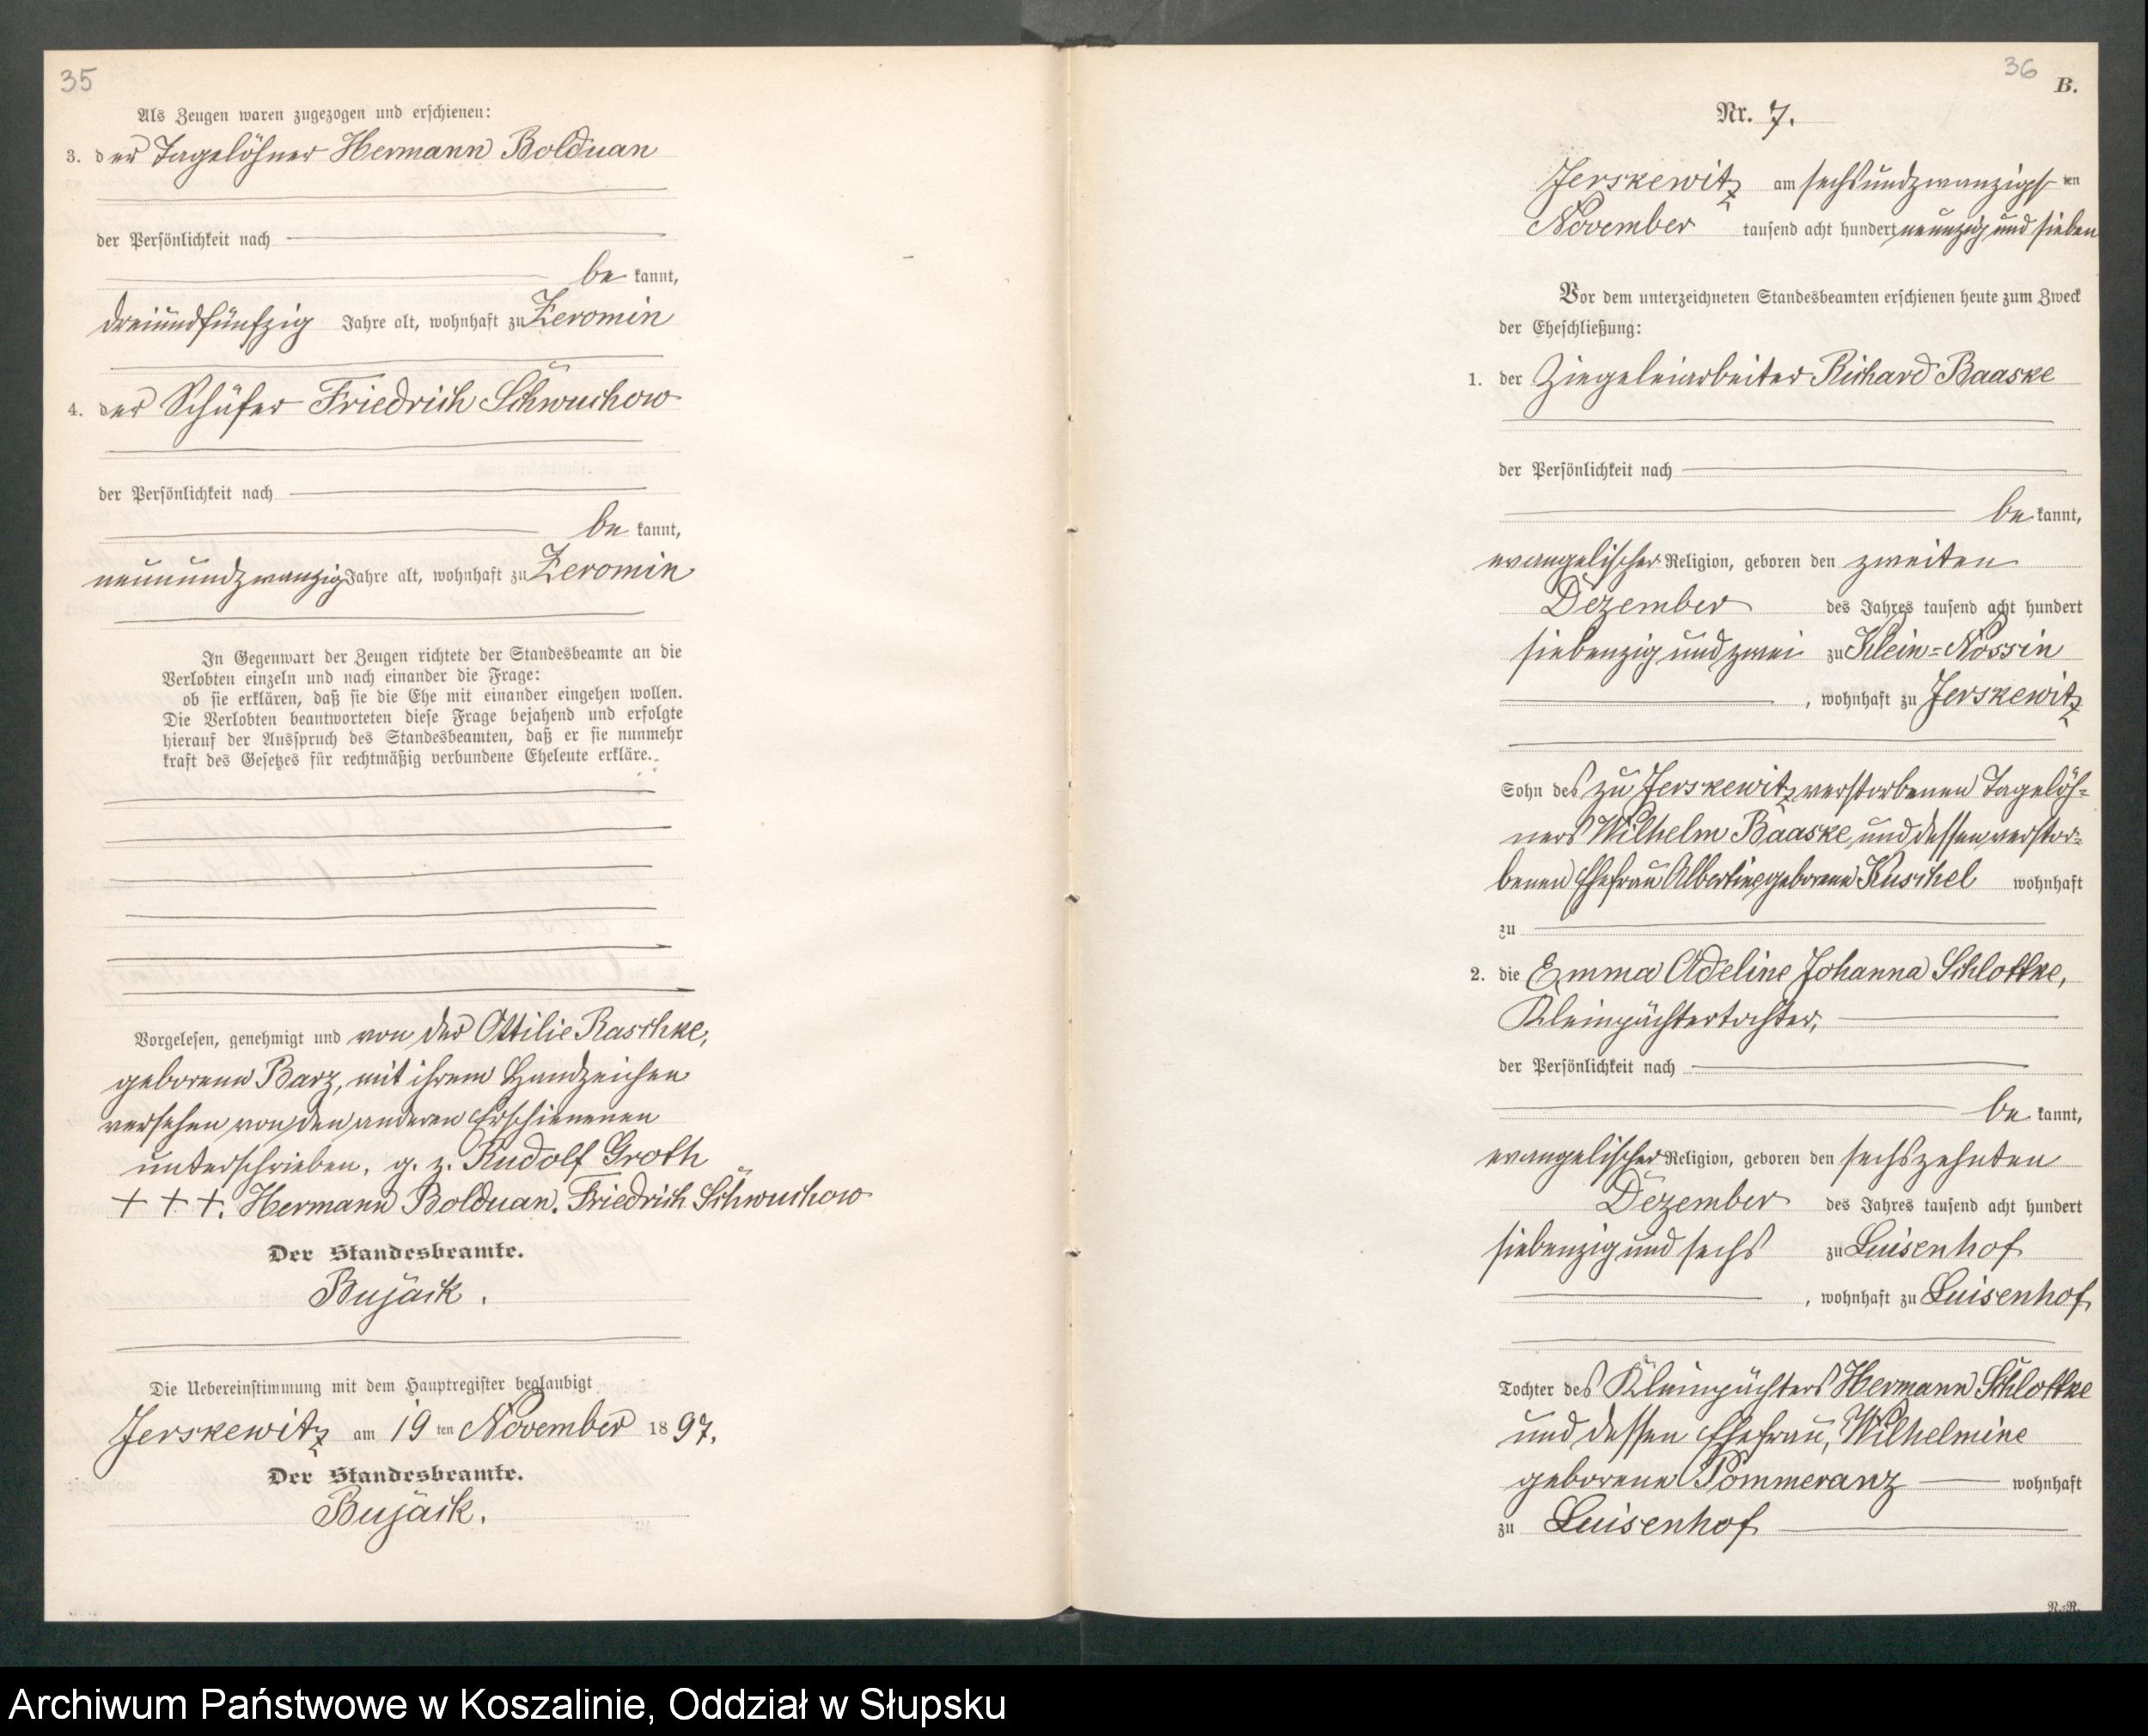 35
Als Zeugen waren zugezogen und erschienen:
3. der Tagelöhner Hermann Bolduan
der Persönlichkeit nach
be kannt,
dreiundfünfzig Jahre alt, wohnhaft zu Zeromin
4. der Schäfer Friedrich Schwuchow
der Persönlichkeit nach
be kannt,
neunundzwanzig Jahre alt, wohnhaft zu Zeromin
In Gegenwart der Zeugen richtete der Standesbeamte an die
Verlobten einzeln und nach einander die Frage:
ob sie erklären, daß sie die Ehe mit einander eingehen wollen.
Die Verlobten beantworteten diese Frage bejahend und erfolgte
hierauf der Ausspruch des Standesbeamten, daß er sie nunmehr
kraft des Gesetzes für rechtmäßig verbundene Eheleute erkläre.
Vorgelesen, genehmigt und von der Ottilie Raschke,
geborenen Barz, mit ihrem Handzeichen
versehen von den anderen Erschienenen
unterschrieben. g. z. Rudolf Groth
+ + +. Hermann Bolduan. Friedrich Schwuchow
Der Standesbeamte.
Bujack.
Die Uebereinstimmung mit dem Hauptregister beglaubigt
Jerskewitz am 19 ten November 1897.
Der Standesbeamte.
Bujack.
36
B.
Nr. 7.
Jerskewitz am sechsundzwanzigsten
November tausend acht hundert neunzig und sieben
Vor dem unterzeichneten Standesbeamten erschienen heute zum Zweck
der Eheschließung:
1. der Ziegeleiarbeiter Richard Baaske
der Persönlichkeit nach
be kannt,
evangelischer Religion, geboren den zweiten
Dezember des Jahres tausend acht hundert
siebenzig und zwei zu Klein-Nossin
, wohnhaft zu Jerskewitz
Sohn des zu Jerskewitz verstorbenen Tagelöh-
ners Wilhelm Baaske und dessen verstor-
benen Ehefrau Albertine geborenen Kuschel wohnhaft
zu
2. die Emma Adeline Johanna Schlottke,
Kleinpächtertochter,
der Persönlichkeit nach
be kannt,
evangelischer Religion, geboren den sechszehnten
Dezember des Jahres tausend acht hundert
siebenzig und sechs zu Luisenhof
, wohnhaft zu Luisenhof
Tochter des Kleinpächters Hermann Schlottke
und dessen Ehefrau, Wilhelmine
geborenen Pommeranz wohnhaft
zu Luisenhof
N.-R.
Archiwum Państwowe w Koszalinie, Oddział w Słupsku